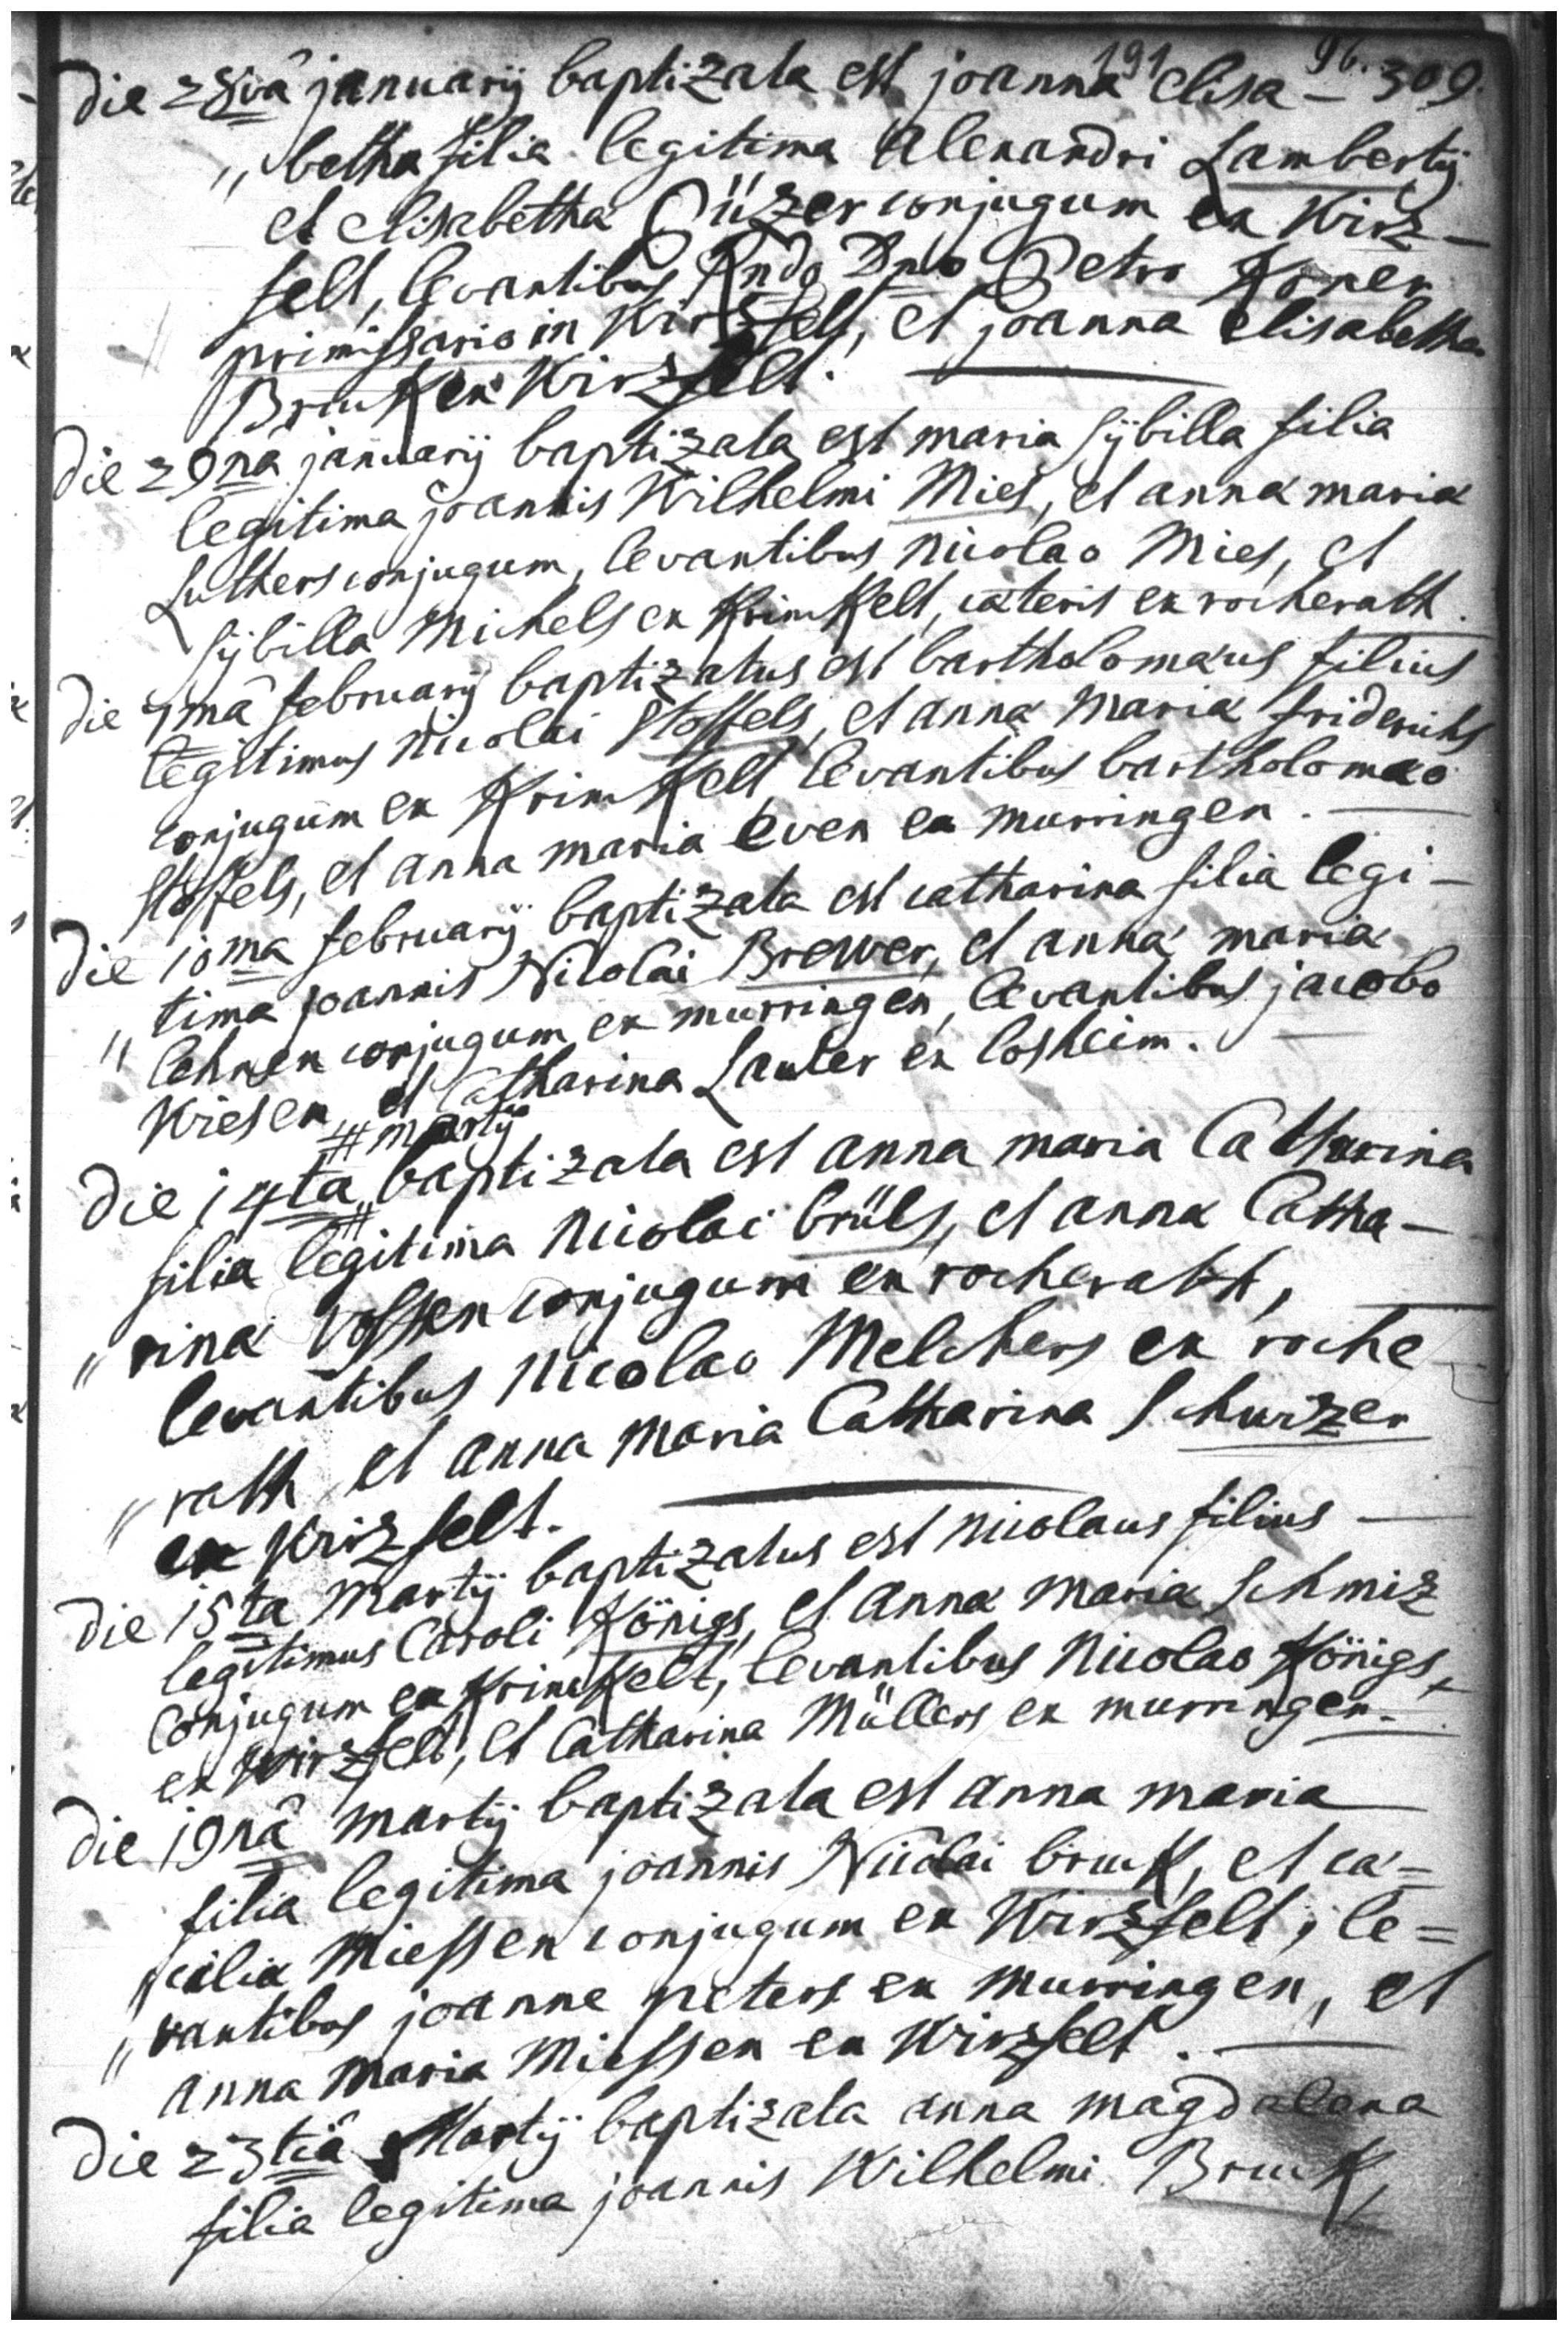 191 96. 309.
die 28va januarij baptizata est joanna elisa-
" betha filia legitima alexandri Lambertij
et elisabetha Püzer conjugum ex Wirz-
felt, levantibus Rndo Dno Petro Koner
primissario in Wirzfelt, et joanna elisabetha
Bruck ex Wirzfelt.
die 29na januarij baptizata est maria sÿbilla filia
legitima joannis Wilhelmi Mies, et anna maria
Luthers conjugum, levantibus nicolao Mies, et
sÿbilla Michels ex Krinkelt, cæteris ex rocherath.
die 7ma februarij baptizatus est bartholomæus filius
legitimus nicolai stoffels, et anna maria friderichs
conjugum ex Krinkelt, levantibus bartholomæo
stoffels, et anna maria even ex murringen.
die 10ma februarij baptizata est catharina filia legi-
" tima joannis Nicolai Brewer, et anna maria
lehnen conjugum ex murringen, levantibus jacobo
Wiesen, et Catharina Lauter ex losheim.
# martij
die 14ta # baptizata est anna maria Catharina
filia legitima nicolai brüls, et anna Catha-
" rina Vossen conjugum ex rocherath,
levantibus nicolao Melchers ex roche
" rath, et anna maria Catharina Schwizer
ex Wirzfelt.
die 15ta martij baptizatus est nicolaus filius
legitimus Caroli Königs, et anna maria schmiz
Conjugum ex Krinkelt, levantibus nicolao Königs,
ex Wirzfelt, et Catharina Müllers ex murringen.
die 19na martij baptizata est anna maria
filia legitima joannis Nicolai bruck, et cæ=
cilia Miessen conjugum ex Wirzfelt, le=
" vantibus joanne peters ex murringen, et
anna maria Miessen ex Wirzfelt.
die 23tia Martij baptizata anna magdalena
filia legitima joannis Wilhelmi Bruck,